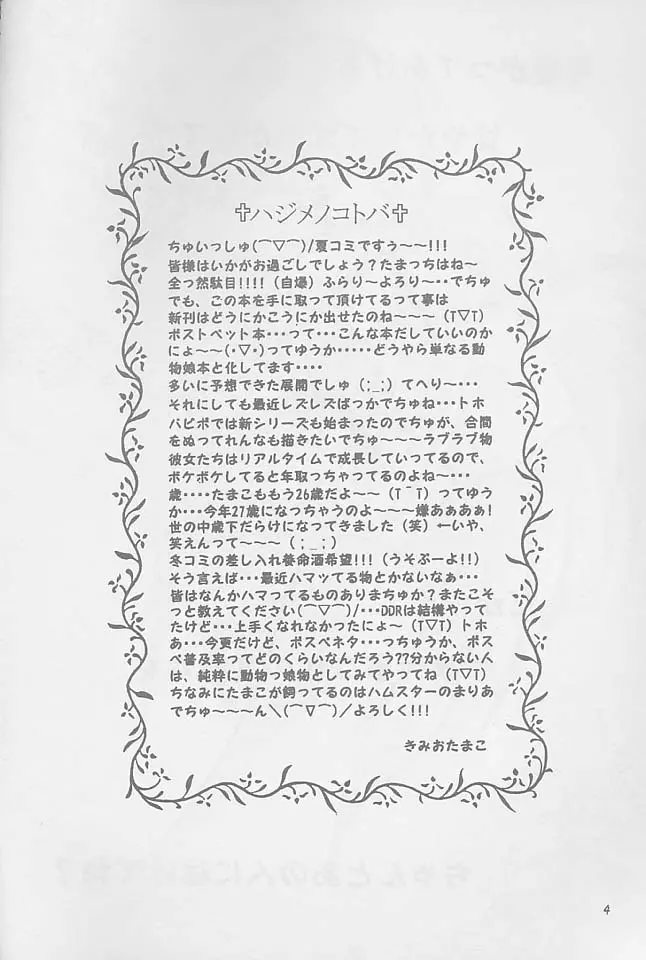 ✞ハジメノコトバ✞
ちゅいっしゅ(⌒▽⌒)/夏コミですぅ～～!!!
皆様はいかがお過ごしでしょう？たまっちはね～
全っ然駄目!!!!（自爆）ふらり～よろり～・・でちゅ
でも、この本を手に取って頂けてるって事は
新刊はどうにかこうにか出せたのね～～（T▽T）
ポストペット本・・・って・・・こんな本だしていいのか
にょ～～(・▽・)ってゆうか・・・・・どうやら単なる動
物娘本と化してます・・・・
多いに予想できた展開でしゅ（；_；）てへり～・・・
それにしても最近レズレズばっかでちゅね・・・トホ
パピポでは新シリーズも始まったのでちゅが、合間
をぬってれんなも描きたいでちゅ～～～ラブラブ物
彼女たちはリアルタイムで成長していってるので、
ボケボケしてると年取っちゃってるのよね～・・・
歳・・・・たまこももう26歳だよ～～（T＾T）ってゆう
か・・・今年27歳になっちゃうのよ～～～～嫌あぁあぁ!
世の中歳下だらけになってきました（笑）←いや、
笑えんって～～～（；_；）
冬コミの差し入れ養命酒希望!!!（うそぷーよ!!）
そう言えば・・・最近ハマッてる物とかないなぁ・・・
皆はなんかハマってるものありまちゅか？またこそ
っと教えてください(⌒▽⌒)/・・・DDRは結構やって
たけど・・・上手くなれなかったにょ～（T▽T）トホ
あ・・・今更だけど、ポスペネタ・・・っちゅうか、ポス
ペ普及率ってどのくらいなんだろう??分からない人
は、純粋に動物っ娘物としてみてやってね（T▽T）
ちなみにたまこが飼ってるのはハムスターのまりあ
でちゅ～～～ん＼(⌒▽⌒)／よろしく!!!
きみおたまこ
4